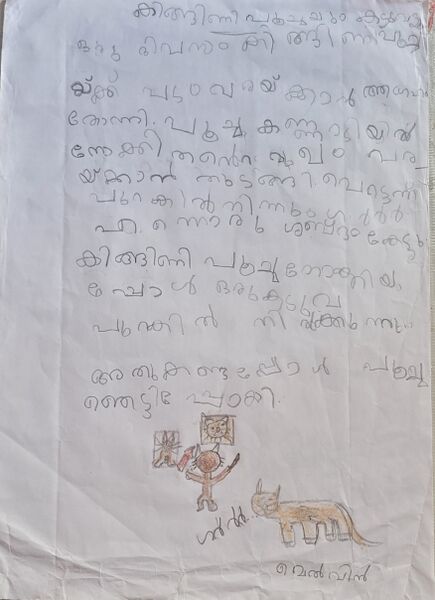 കിങ്ങിണി പൂച്ചയും കടുവയും
ഒരു ദിവസം കിങ്ങിണിപൂച്ച
യ്ക്ക് പടം വരയ്ക്കാൻ ആഗ്രഹം
തോന്നി. പൂച്ച കണ്ണാടിയിൽ
നോക്കി തൻെറ മുഖം വര
യ്ക്കാൻ തുടങ്ങി. പെട്ടെന്ന്
പുറകിൽ നിന്നും ഗർർർ
എന്നൊരു ശബ്ദം കേട്ടു
കിങ്ങിണി പൂച്ച നോക്കിയ
പ്പോൾ ഒരു കടുവ
പുറകിൽ നിൽക്കുന്നു.
അതുകണ്ടപ്പോൾ പൂച്ച
ഞെട്ടിപ്പോക്കി.
ഗർർർ...
മെൽവിൻ